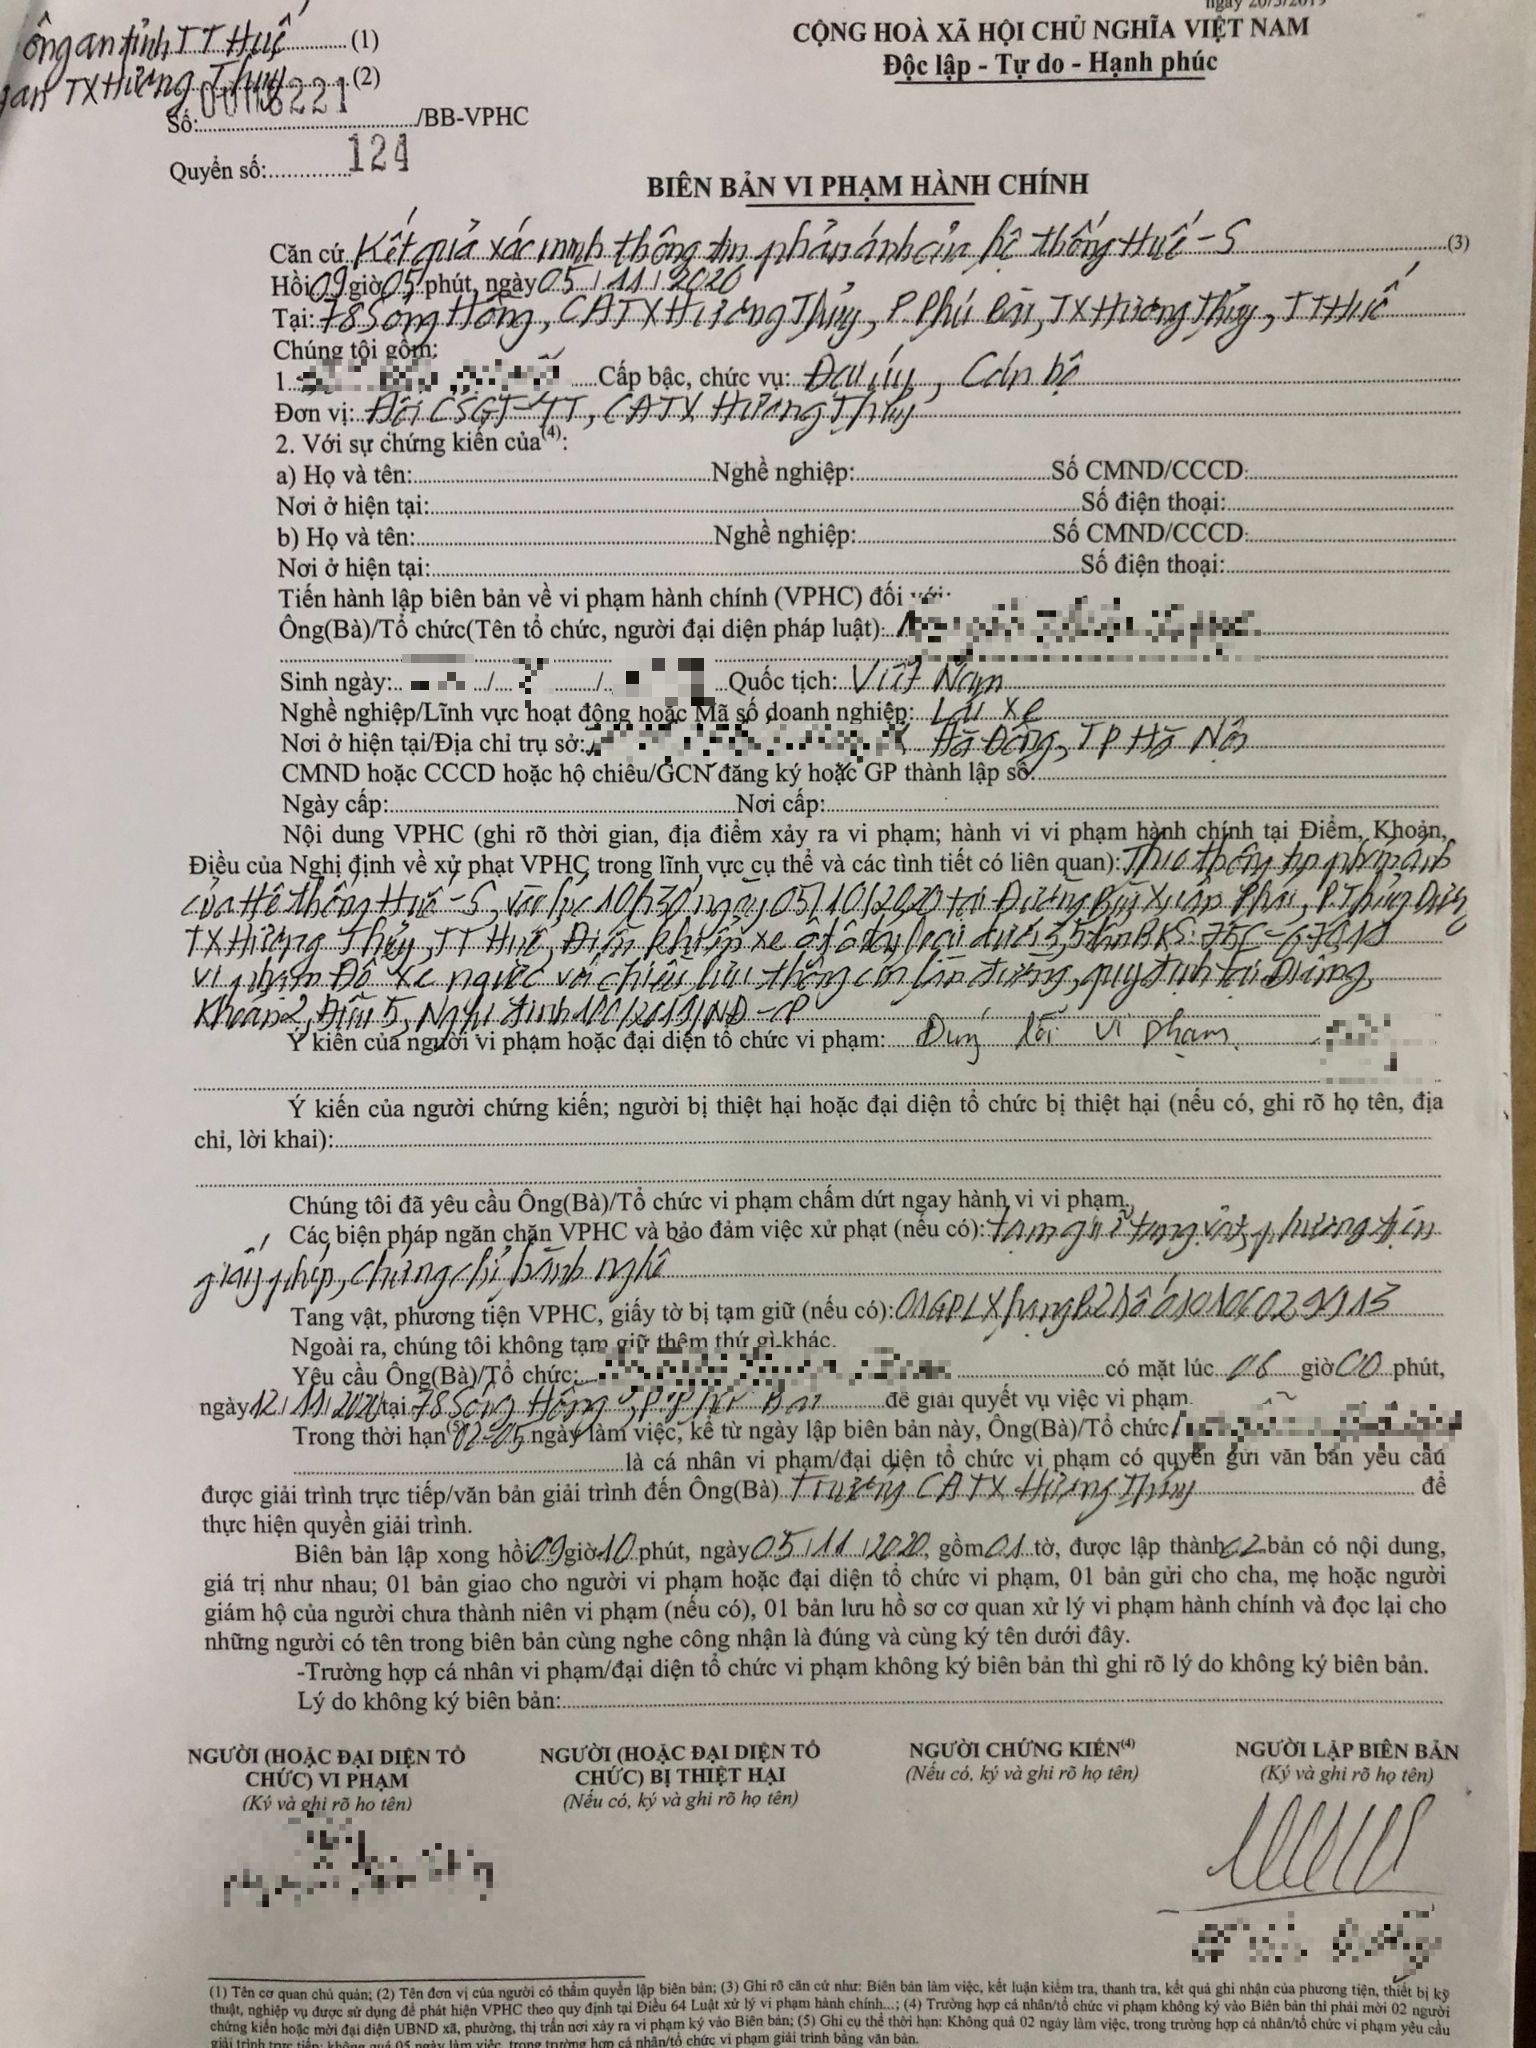 ngày 20/5/2019
ông an tỉnh TT Huế (1)
CỘNG HOÀ XÃ HỘI CHỦ NGHĨA VIỆT NAM
an TX Hương Thủy (2)
Độc lập - Tự do - Hạnh phúc
Số: /BB-VPHC
Quyển số: 124
BIÊN BẢN VI PHẠM HÀNH CHÍNH
Căn cứ Kết quả xác minh thông tin phản ánh của hệ thống Huế-S (3)
Hồi 09 giờ 05 phút, ngày 05/11/2020
Tại: 78 Sóng Hồng, CATX Hương Thủy, P Phú Bài, TX Hương Thủy, TT Huế
Chúng tôi gồm:
1. Cấp bậc, chức vụ: Đại úy, Cán bộ
Đơn vị: Đội CSGT-TT, CATX Hương Thủy
2. Với sự chứng kiến của(4):
a) Họ và tên: Nghề nghiệp: Số CMND/CCCD:
Nơi ở hiện tại: Số điện thoại:
b) Họ và tên: Nghề nghiệp: Số CMND/CCCD:
Nơi ở hiện tại: Số điện thoại:
Tiến hành lập biên bản về vi phạm hành chính (VPHC) đối với:
Ông(Bà)/Tổ chức(Tên tổ chức, người đại diện pháp luật):
Sinh ngày: / / Quốc tịch: Việt Nam
Nghề nghiệp/Lĩnh vực hoạt động hoặc Mã số doanh nghiệp: Lái xe
Nơi ở hiện tại/Địa chỉ trụ sở: Hà Đông, TP Hà Nội
CMND hoặc CCCD hoặc hộ chiếu/GCN đăng ký hoặc GP thành lập số:
Ngày cấp: Nơi cấp:
Nội dung VPHC (ghi rõ thời gian, địa điểm xảy ra vi phạm; hành vi vi phạm hành chính tại Điểm, Khoản,
Điều của Nghị định về xử phạt VPHC trong lĩnh vực cụ thể và các tình tiết có liên quan): Theo thông tin phản ánh
của Hệ thống Huế-S, vào lúc 10h30 ngày 05/10/2020 tại Đường Bùi Xuân Phái, P. Thủy Dương
TX Hương Thủy, TT Huế, Điều khiển xe ô tô tải loại dưới 3,5 tấn BKS: 75C-
vi phạm Đỗ xe ngược với chiều lưu thông của làn đường, quy định tại Điểm g
Khoản 2, Điều 5, Nghị định 100/2019/NĐ-CP
Ý kiến của người vi phạm hoặc đại diện tổ chức vi phạm: Đúng lỗi vi phạm.
Ý kiến của người chứng kiến; người bị thiệt hại hoặc đại diện tổ chức bị thiệt hại (nếu có, ghi rõ họ tên, địa
chỉ, lời khai):
Chúng tôi đã yêu cầu Ông(Bà)/Tổ chức vi phạm chấm dứt ngay hành vi vi phạm.
Các biện pháp ngăn chặn VPHC và bảo đảm việc xử phạt (nếu có): tạm giữ tang vật, phương tiện
giấy phép, chứng chỉ hành nghề
Tang vật, phương tiện VPHC, giấy tờ bị tạm giữ (nếu có): 01 GPLX hạng B2 số
Ngoài ra, chúng tôi không tạm giữ thêm thứ gì khác.
Yêu cầu Ông(Bà)/Tổ chức: có mặt lúc 06 giờ 00 phút,
ngày 12/11/2020 tại 78 Sóng Hồng, P. Phú Bài để giải quyết vụ việc vi phạm.
Trong thời hạn(5) 02-05 ngày làm việc, kể từ ngày lập biên bản này, Ông(Bà)/Tổ chức
là cá nhân vi phạm/đại diện tổ chức vi phạm có quyền gửi văn bản yêu cầu
được giải trình trực tiếp/văn bản giải trình đến Ông(Bà) Trưởng CATX Hương Thủy để
thực hiện quyền giải trình.
Biên bản lập xong hồi 09 giờ 10 phút, ngày 05/11/2020, gồm 01 tờ, được lập thành 02 bản có nội dung,
giá trị như nhau; 01 bản giao cho người vi phạm hoặc đại diện tổ chức vi phạm, 01 bản gửi cho cha, mẹ hoặc người
giám hộ của người chưa thành niên vi phạm (nếu có), 01 bản lưu hồ sơ cơ quan xử lý vi phạm hành chính và đọc lại cho
những người có tên trong biên bản cùng nghe công nhận là đúng và cùng ký tên dưới đây.
-Trường hợp cá nhân vi phạm/đại diện tổ chức vi phạm không ký biên bản thì ghi rõ lý do không ký biên bản.
Lý do không ký biên bản:
NGƯỜI (HOẶC ĐẠI DIỆN TỔ CHỨC) VI PHẠM
(Ký và ghi rõ họ tên)
NGƯỜI (HOẶC ĐẠI DIỆN TỔ CHỨC) BỊ THIỆT HẠI
(Nếu có, ký và ghi rõ họ tên)
NGƯỜI CHỨNG KIẾN(4)
(Nếu có, ký và ghi rõ họ tên)
NGƯỜI LẬP BIÊN BẢN
(Ký và ghi rõ họ tên)
(1) Tên cơ quan chủ quản; (2) Tên đơn vị của người có thẩm quyền lập biên bản; (3) Ghi rõ căn cứ như: Biên bản làm việc, kết luận kiểm tra, thanh tra, kết quả ghi nhận của phương tiện, thiết bị kỹ
thuật, nghiệp vụ được sử dụng để phát hiện VPHC theo quy định tại Điều 64 Luật xử lý vi phạm hành chính...; (4) Trường hợp cá nhân/tổ chức vi phạm không ký vào Biên bản thì phải mời 02 người
chứng kiến hoặc mời đại diện UBND xã, phường, thị trấn nơi xảy ra vi phạm ký vào Biên bản; (5) Ghi cụ thể thời hạn: Không quá 02 ngày làm việc, trong trường hợp cá nhân/tổ chức vi phạm yêu cầu
giải trình trực tiếp; không quá 05 ngày làm việc, trong trường hợp cá nhân/tổ chức vi phạm giải trình bằng văn bản.